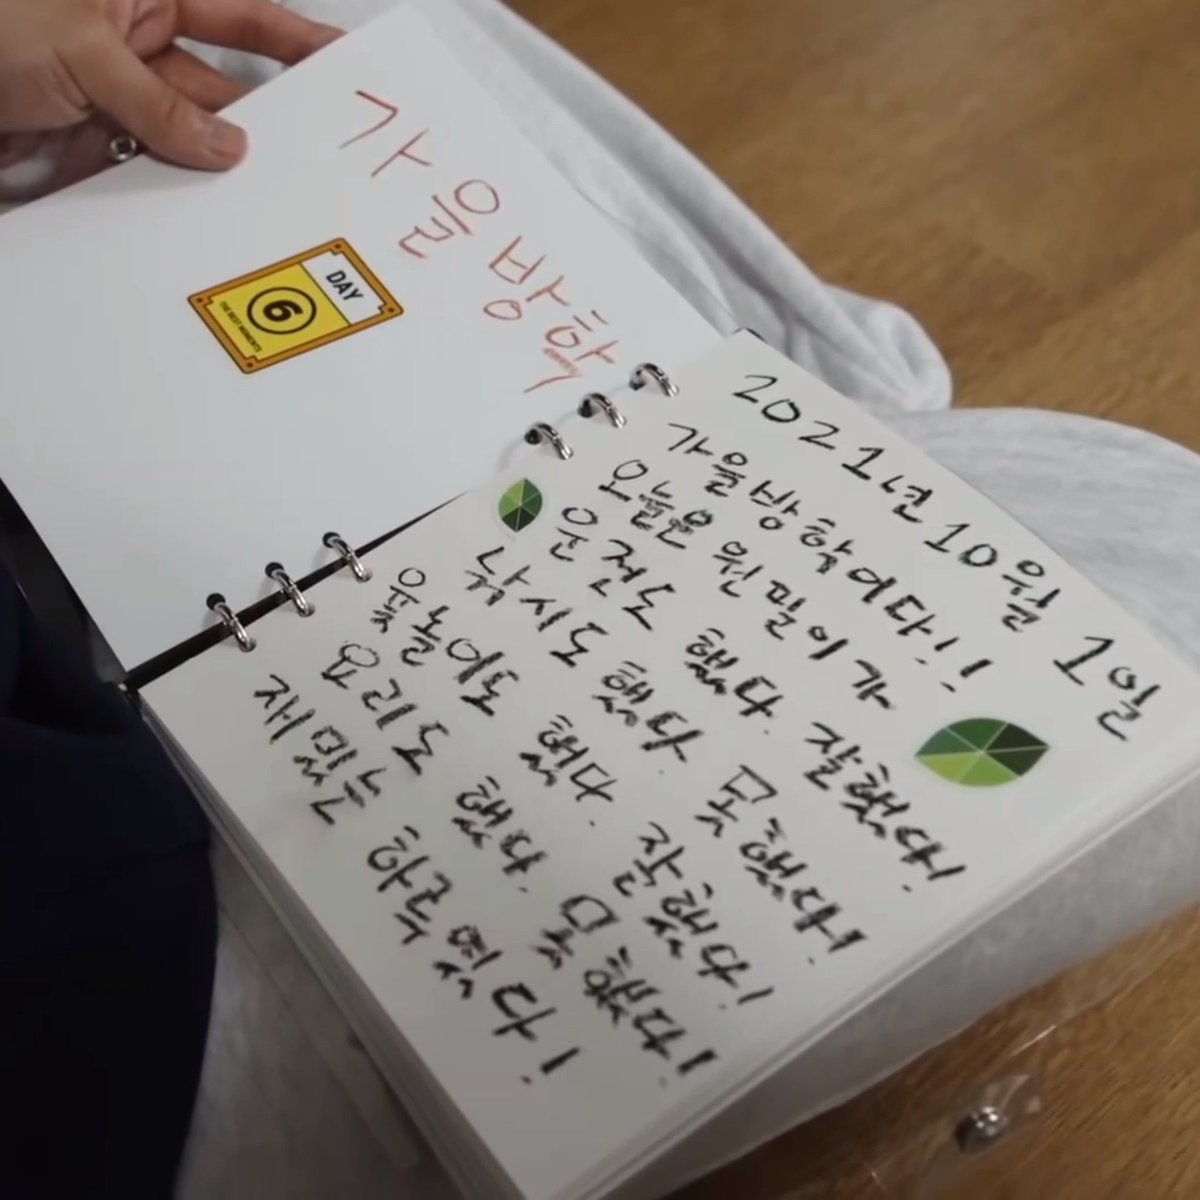 가을방학
DAY
6
THE BEST MOMENTS
2021년 10월 1일
가을방학이다!!
오늘은 원필이가
운전도 했다. 잘했다!
낚시도 했다. 못했다!
윷놀이도 했다. 잘했다!
요리도 했다. 못했다!